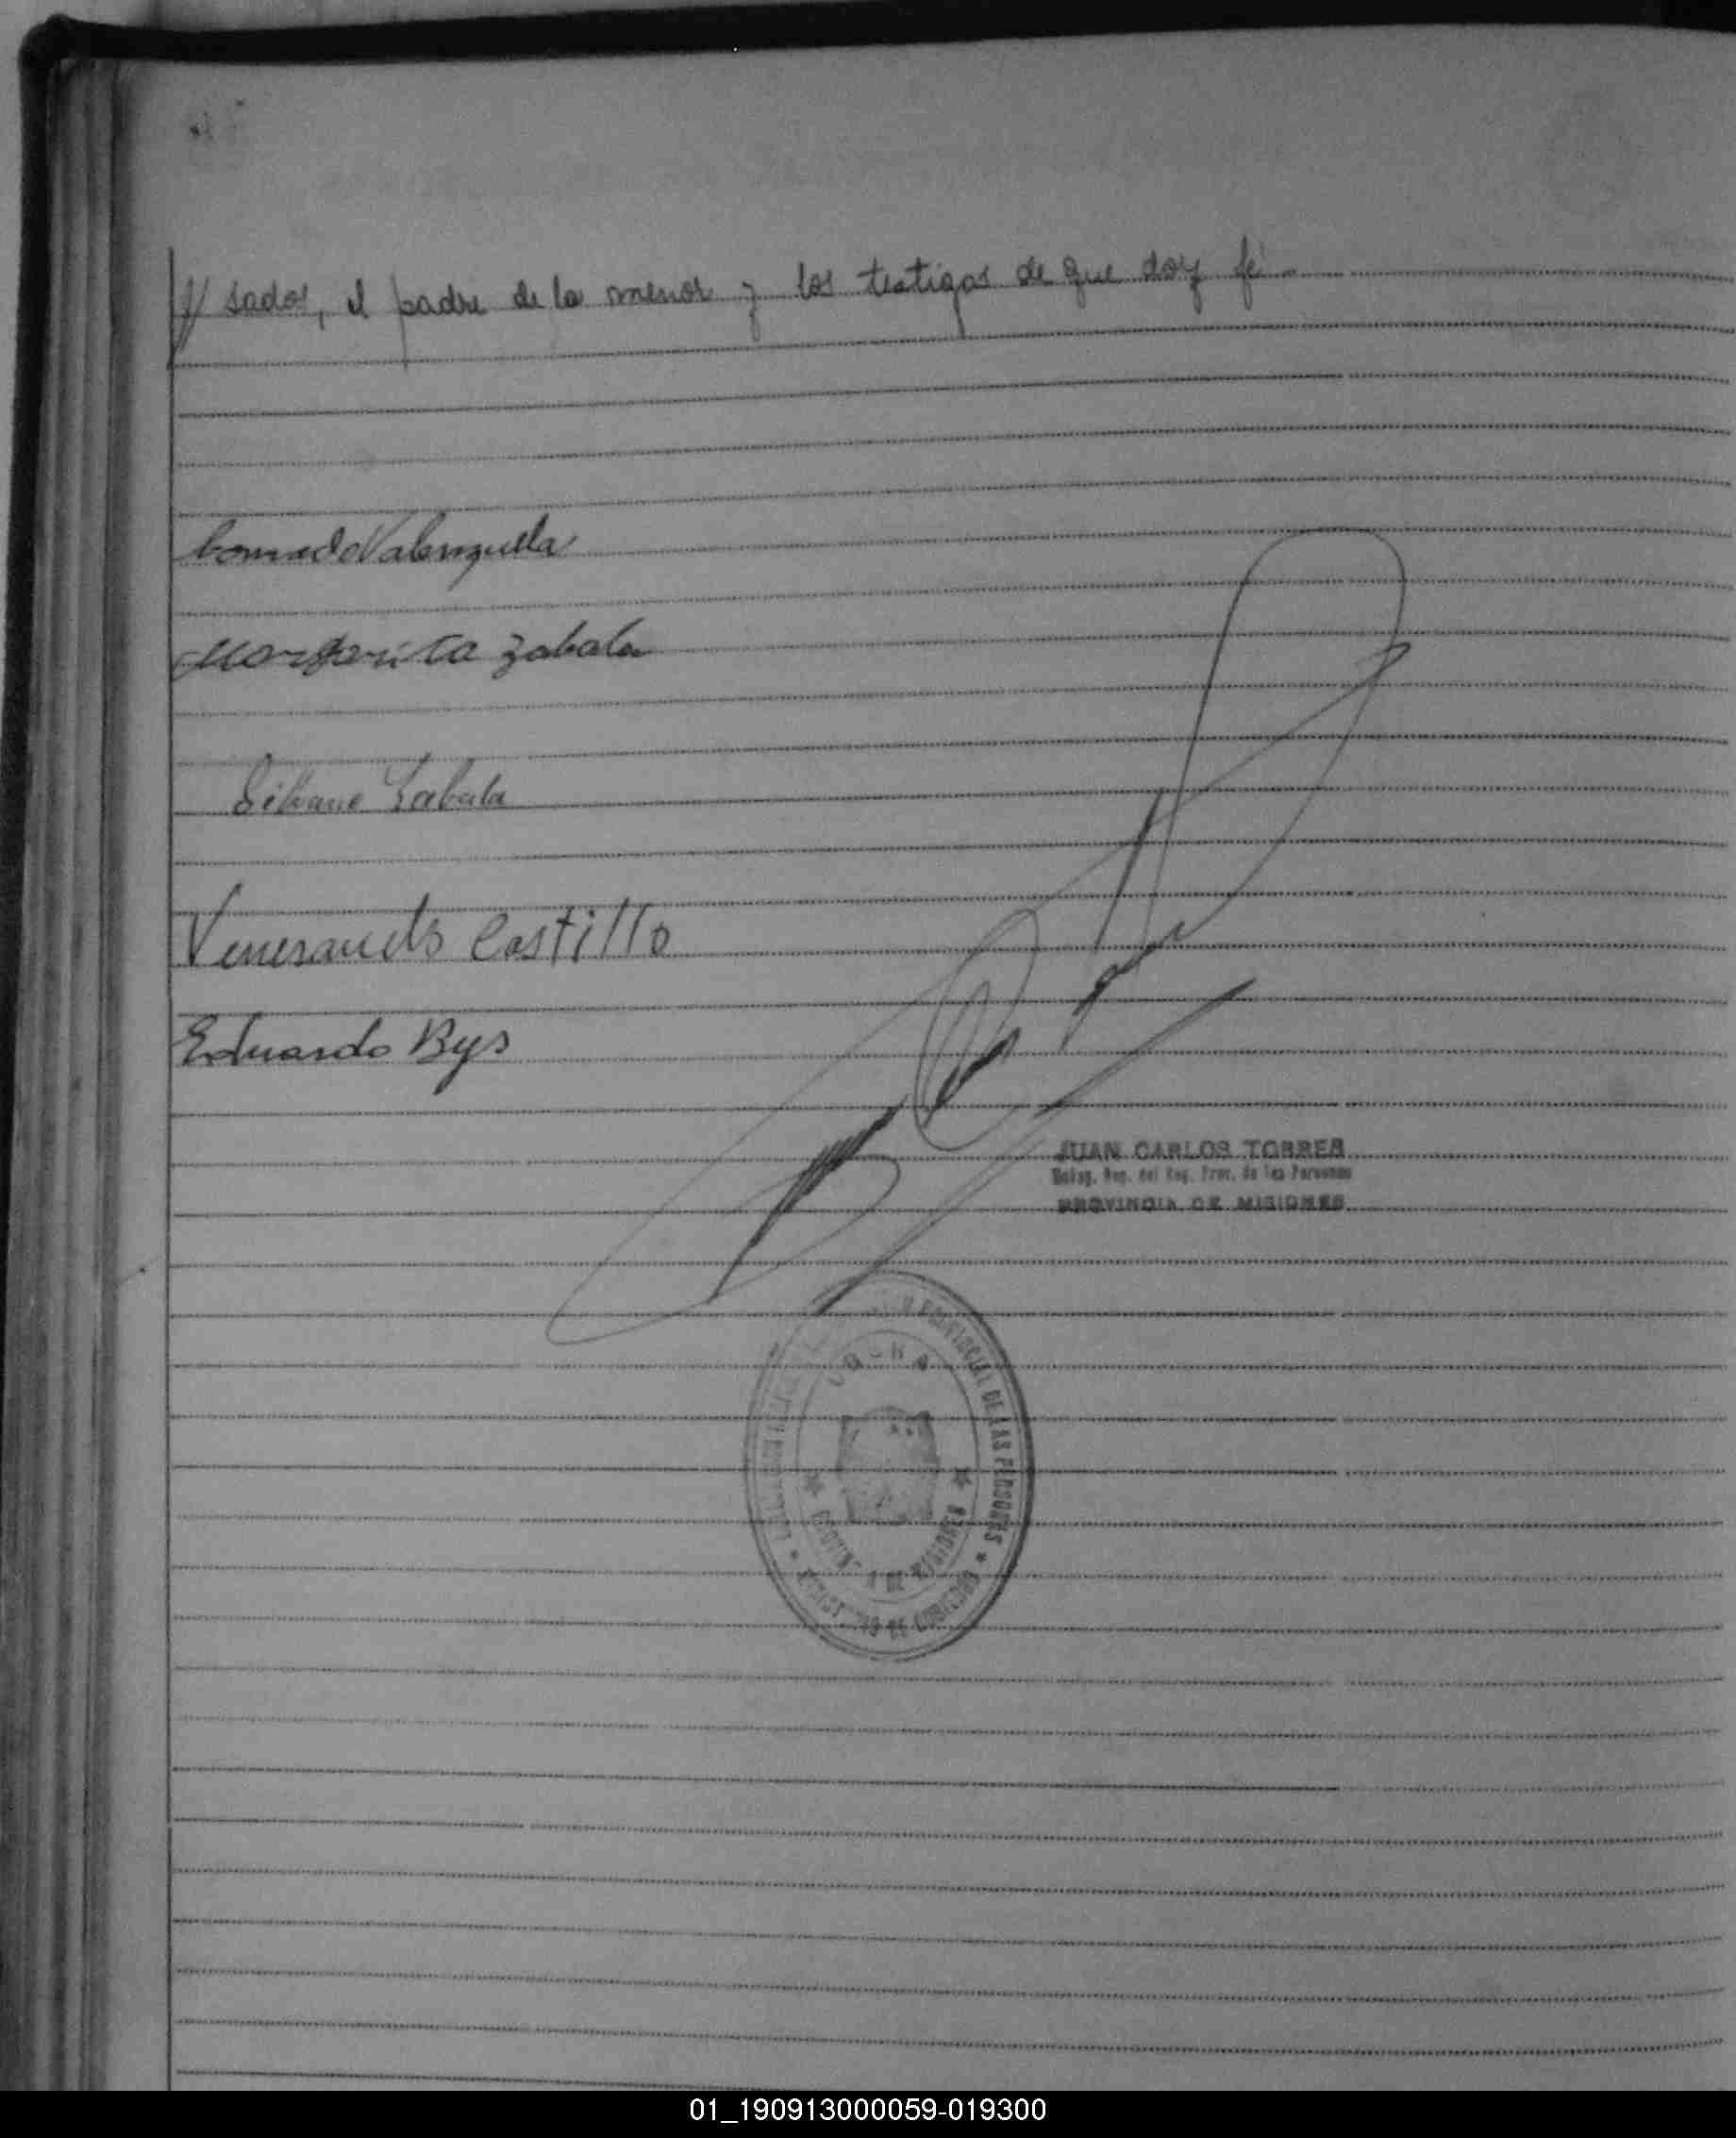 sados, el padre de la menor y los testigos de que doy fé.-
Conrado Valenzuela
Margarita Zabala
Silvano Zabala
Venerando Castillo
Eduardo Bys
JUAN CARLOS TORRES
Deleg. Rep. del Reg. Prov. de las Personas
PROVINCIA DE MISIONES
PROVINCIAL DE LAS PERSONAS
DE GOBIERNO
DE MISIONES
01_190913000059-019300